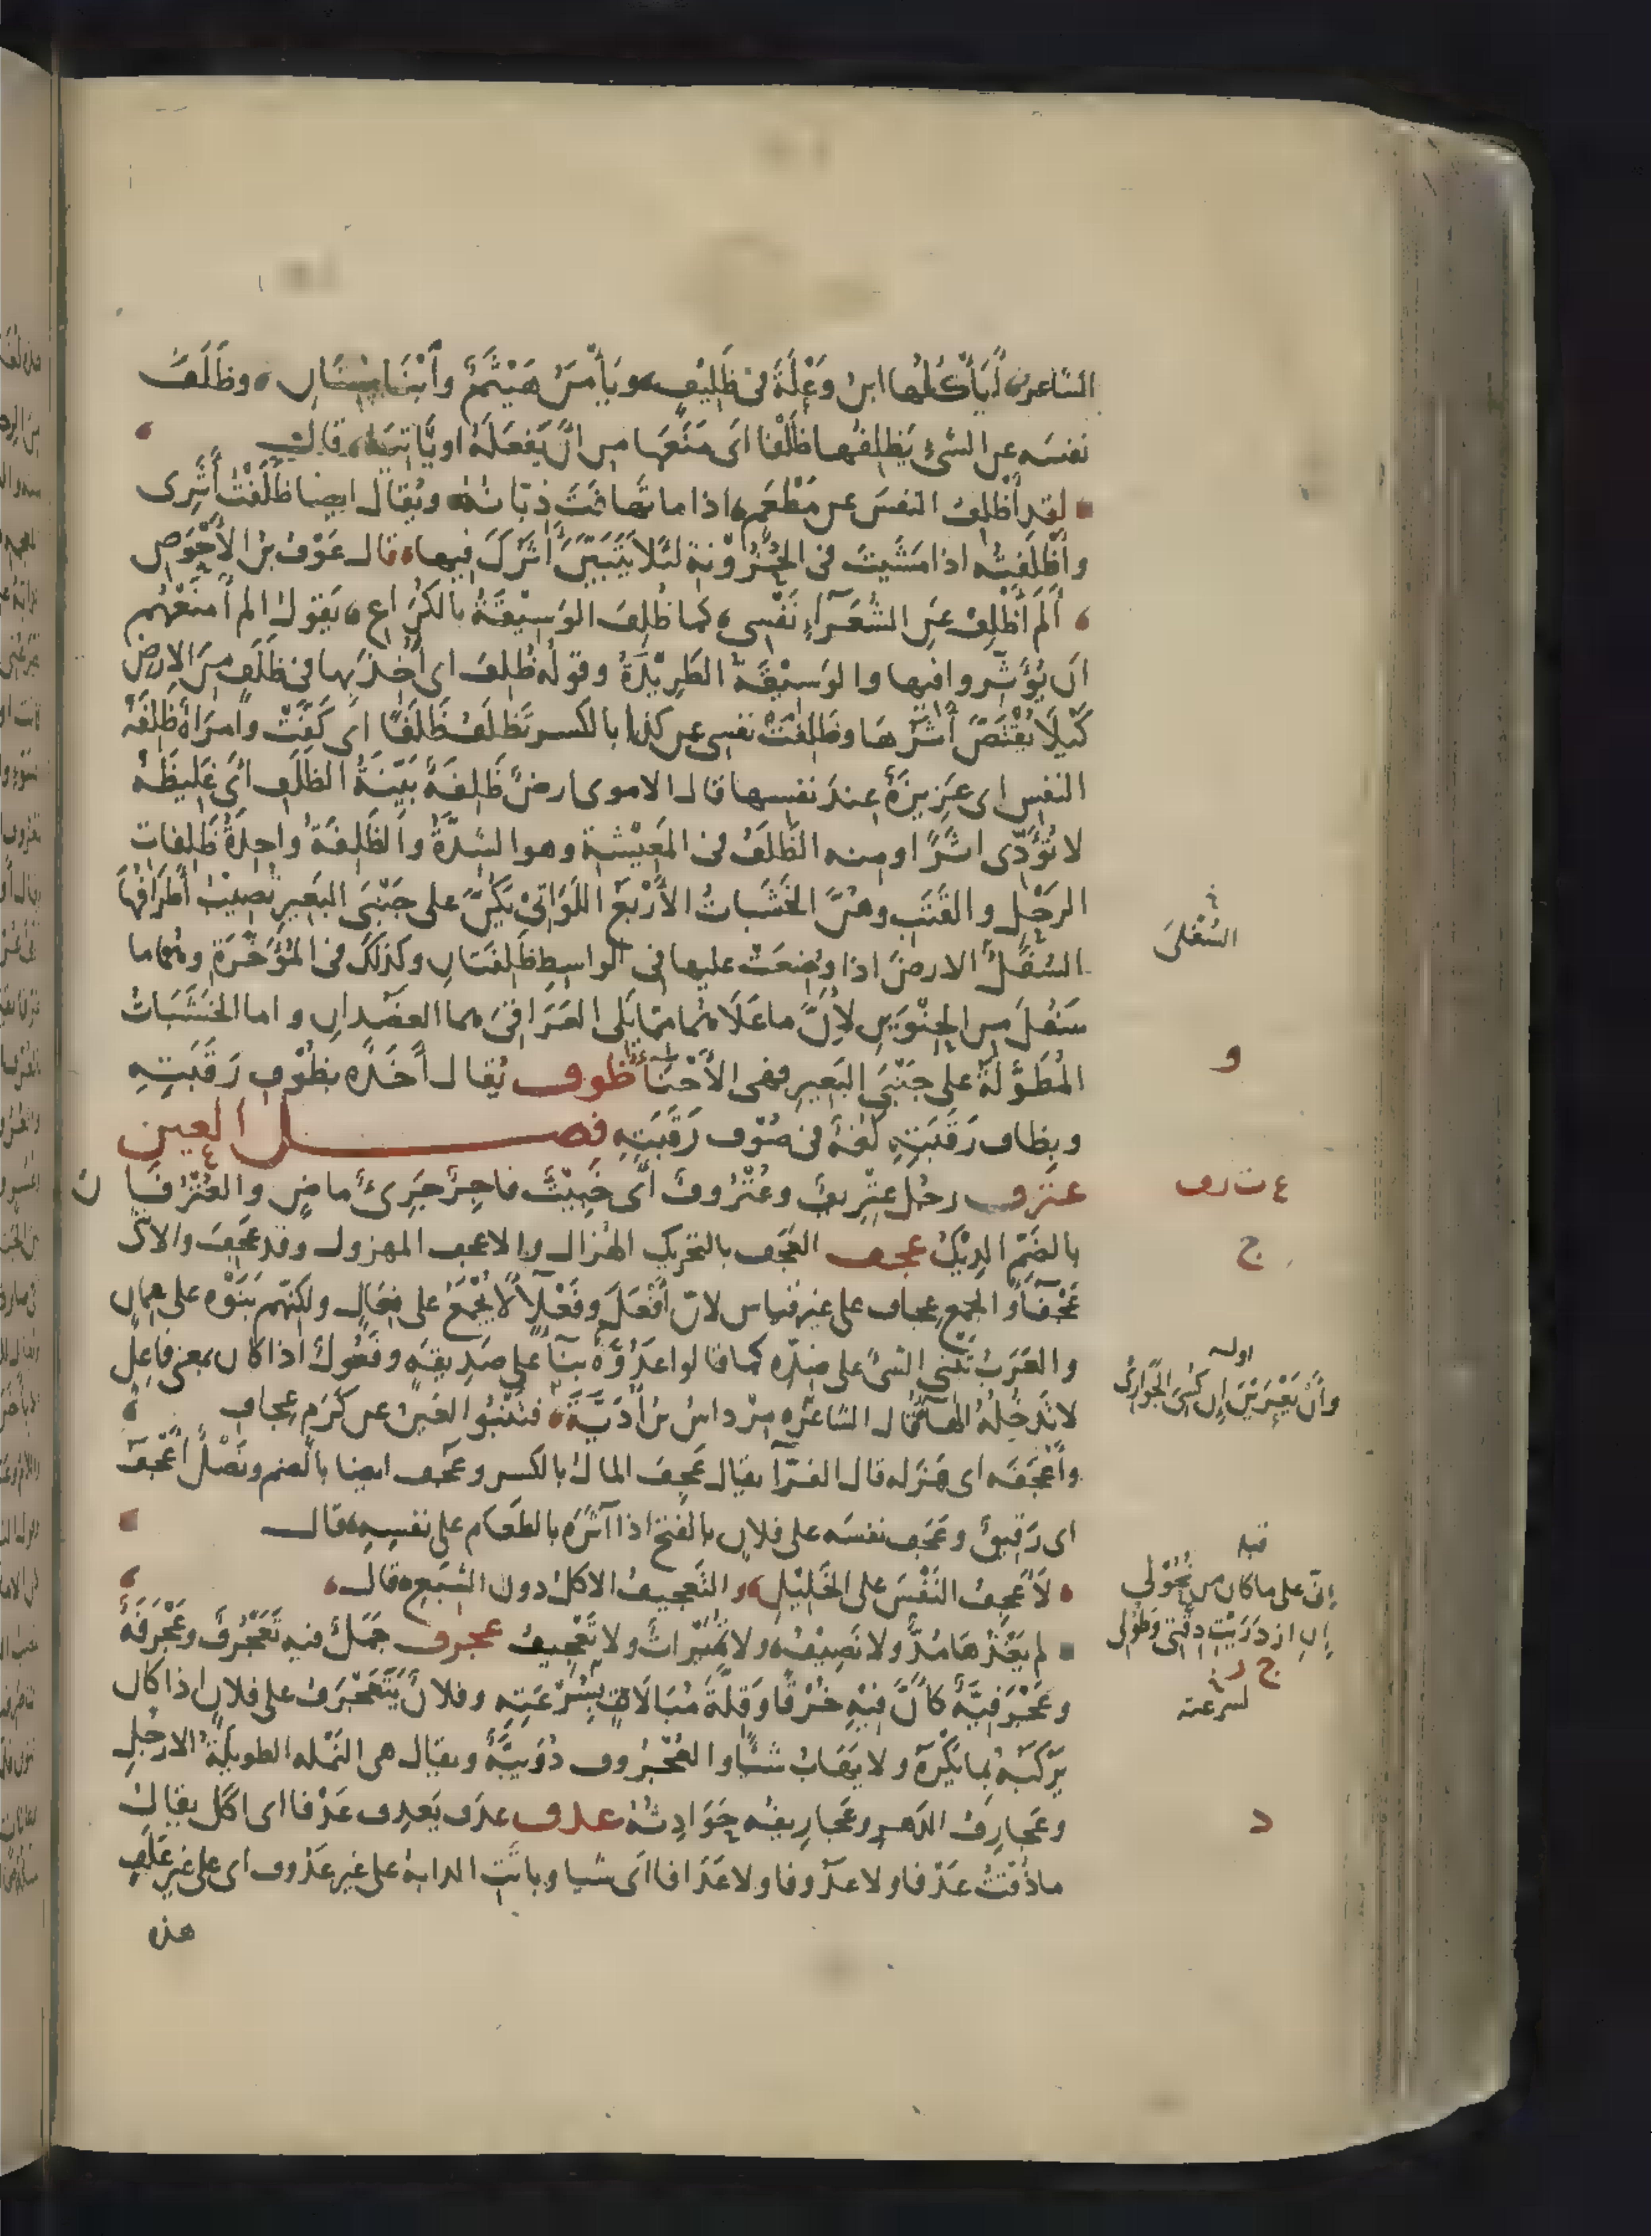 الشاعر أَيَأْكُلُها ابنُ وَعْلَةَ فى ظَلِيفٍ ويَأْمَنُ هَيْثَمٌ وابْنَا سِنَانِ وظَلَفَ
نفسَه عن الشىء يَظلِفُها ظَلْفًا اى مَنَعَها من ان يَفعَلَهُ او يَاتيَهُ قال
لقد أَظْلِفُ النفسَ عن مَطْعَمٍ اذا ما تهافَتَ ذِبّانُهُ ويُقال ايضا ظَلَفْتُ أَثَرِى
وأَظْلَفْتُه اذا مَشَيتَ فى الحُزُوْنةِ لئلا يَتَبَيَّنَ أَثَرُكَ فيها قال عَوْف بن الأَحْوَصِ
أَلَم أَظْلِفْ عَنِ الشُعَرَآءِ نَفْسِى كما ظُلِفَ الوَسِيْقَةُ بالكُرَاعِ يَقولُ الم أَمنَعْهُم
ان يُؤَثِّروا فيها والوَسِيْقَةُ الطَرِيْدَةُ وقولُه ظُلِفَ اى أُخِذَ بها فى ظَلَفٍ مِنَ الارض
كَيْلا يُقْتَصَّ أَثَرُهَا وظَلِفَتْ نفسى عن كذا بالكسر تَظلَفُ ظَلَفًا اى كَفَّتْ وامرَاةٌ ظَلِفَةُ
النفسِ اى عَزِيزَةٌ عِندَ نفسِها قال الاموى ارضٌ ظَلِفَةٌ بَيِّنَةُ الظلَفِ اى غَلِيظَةٌ
لا تُؤَدِّى اثَرًا ومنه الظَلَفُ فى المَعِيْشة وهو الشِدَّةُ والظَلِفَةُ واحِدَةُ ظَلِفاتِ
الرَحْلِ والقَتَبِ وهُنَّ الخَشَباتُ الأَرْبَعُ اللَوَاتِى يَكُنَّ على جَنْبَىِ البَعِيرِ تُصِيْبُ أَطرَافُها
السُفْلَ الارضَ اذا وُضِعَتْ عليها فى الواسِطِ ظَلِفَتَانِ وكذلك فى المُؤَخَّرَةِ وهما ما
سَفُلَ من الحِنْوَيْنِ لأَنّ ما عَلَا منهما مما يَلِى العَرَاقِىَ هما العَضُدانِ واما الخَشَبَاتُ
المُطَوَّلَةُ على جَنْبَىِ البَعِيرِ فهى الأَحْنَآءُ ظوف يُقال أَخَذَه بظُوْفِ رَقَبَتِهِ
وبِظافِ رَقَبَتِهِ لُغةٌ فى صُوْفِ رَقَبَتِهِ فصل العين
عترف رجُل عِتْرِيفٌ وعُتْرُوفٌ اى خَبِيْثٌ فاجِرٌ جَرِىءٌ ماضٍ والعُتْرُفَانُ
بالضَمِّ الدِيْكُ عجف العَجَف بالتحريك الهُزال والاعجف المهزول وقد عَجِفَ والانثى
عَجْفَآءُ والجمع عِجاف على غير قياس لانّ أَفْعَلَ وفَعْلَآءَ لا يُجْمَعُ على فِعَالٍ ولكنّهم بَنَوْه على سِمانٍ
والعَرَبُ تَبْنِى الشىءَ على ضِدِّه كما قالوا عَدُوَّةٌ بِنَآءً على صَدِيقةٍ وفَعُولٌ اذا كان بمعنى فاعِلٍ
لا تَدخُلُهُ الهآءُ قال الشاعرُ مِرْداسُ بنُ أُدَيَّةَ فتَنْبُو العَيْنُ عن كَرَمٍ عِجافِ
وأَعْجَفَه اى هَزَله قال الفَرّآء يقال عَجِفَ المالُ بالكسر وعَجُف ايضا بالضم ونَصْلٌ أَعْجَفُ
اى رَقِيقٌ وعَجَفَ نفسَه على فلانٍ بالفتح اذا آثَرَه بالطعَامِ على نفسِه قال
لأَعْجِفُ النَفْسَ على الخَلِيْلِ والتَعجِيفُ الاكل دونَ الشِبَعِ قال
لم يَغْذُها مُدٌّ ولا نَصِيْفُ ولا تُمَيْراتٌ ولا تَعْجِيفُ عجرف جَمَلٌ فيه تَعَجْرُفٌ وعَجْرَفَةٌ
وعَجْرَفِيَّةٌ كأَنَّ فِيْهِ خُرْقًا وَقِلَّةَ مُبَالَاةٍ بِسُرْعَتِهِ وفلانٌ يَتَعَجْرَفُ على فلانٍ اذا كان
يَرْكَبُهُ بما يَكْرَهُ ولا يَهَابُ شيئًا والعُجْرُوف دُوَيبَّةٌ ويقال هى النَمْله الطويلَةُ الارجُلِ
وعَجارِفُ الدَهرِ وعَجارِيفُه حَوَادِثُهُ عدف عدَف يَعدِف عَدْفا اى اكَل يقال
ما ذُقْتُ عَدْفا ولا عدُوفا ولا عَدَافا اى شيا وباتَتِ الدابةُ على غير عَدُوفٍ اى على غير عَلَفٍ
هذه
السُفْلى
و
ع ت ر ف
ج
اوله
وأَنْ يَعْرَيْنَ إِن كُسِىَ الجَوَارِى
قبله
إنّى على ما كان من نُحُوْلِى
إنِ ازْدَرَيْتِ دِقَّتِى وطُوْلِى
ج ر
لسرعته
د